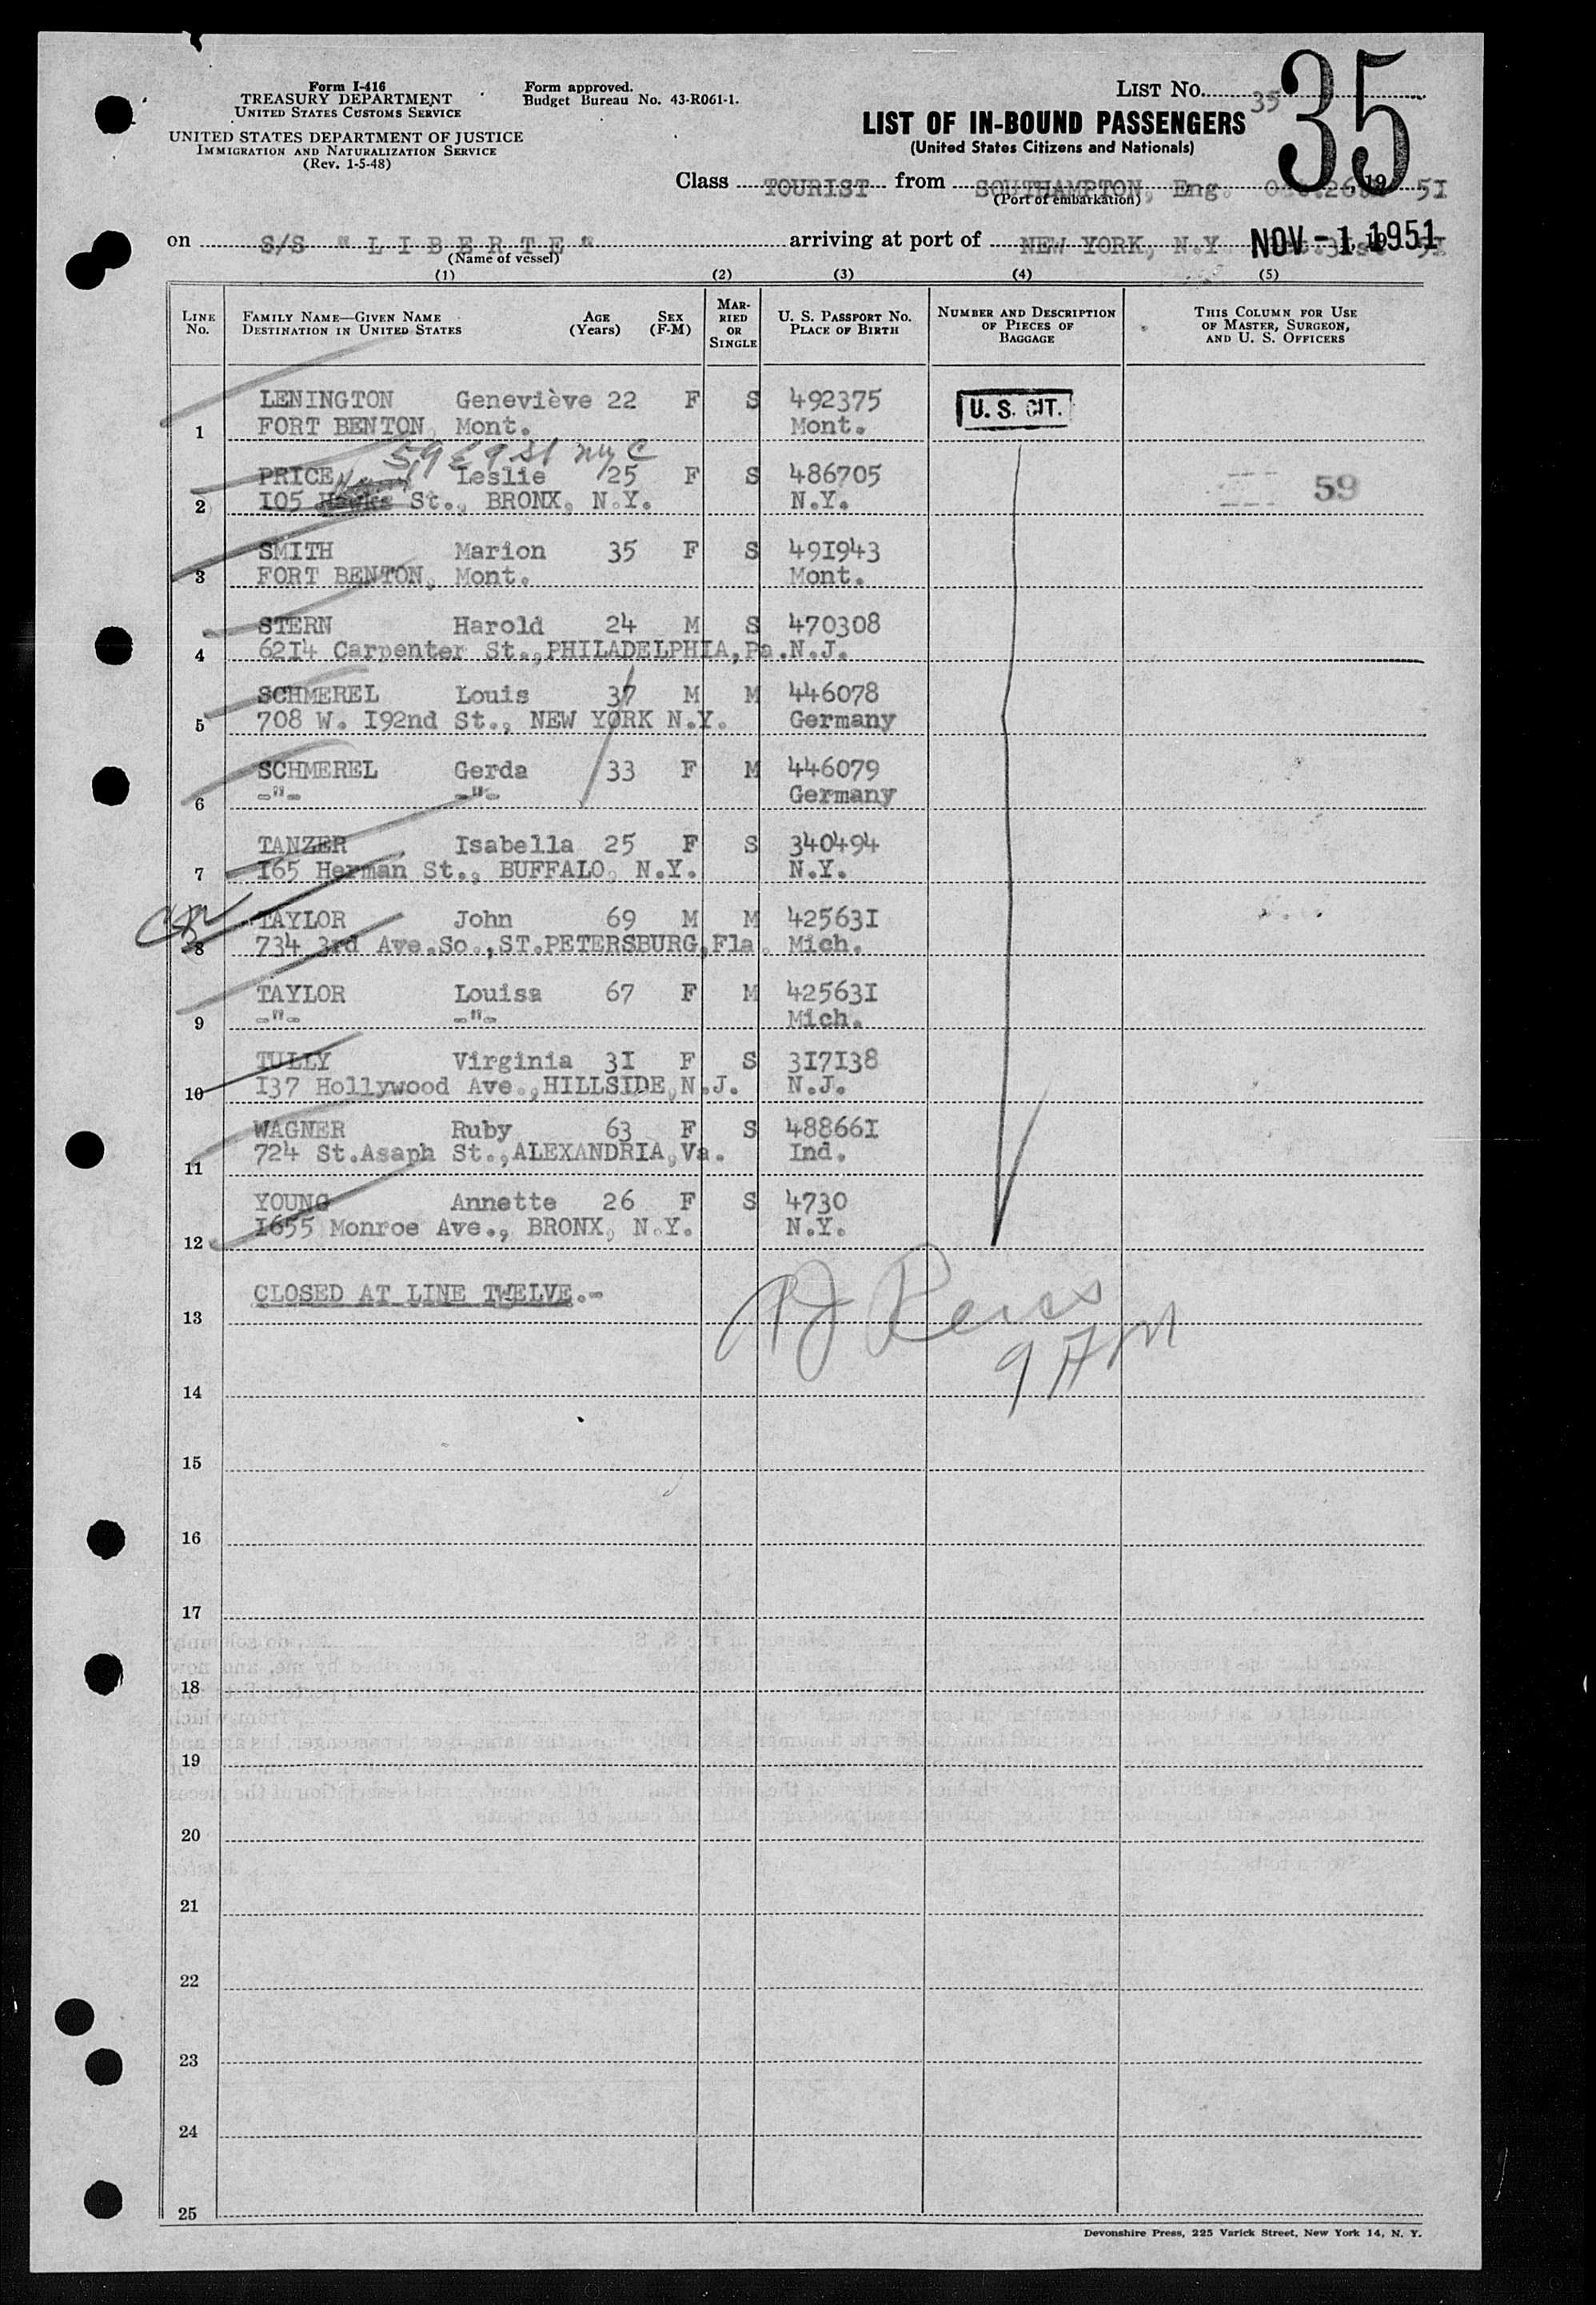 Form I-416
TREASURY DEPARTMENT
UNITED STATES CUSTOMS SERVICE
UNITED STATES DEPARTMENT OF JUSTICE
IMMIGRATION AND NATURALIZATION SERVICE
(Rev. 1-5-48)
Form approved.
Budget Bureau No. 43-R061-1.
LIST No. 35
35
LIST OF IN-BOUND PASSENGERS
(United States Citizens and Nationals)
Class TOURIST from SOUTHAMPTON, Eng. 19 51
(Port of embarkation)
on S/S "L I B E R T E" arriving at port of NEW YORK, N.Y. NOV - 1 1951
(Name of vessel)
(1) (2) (3) (4) (5)
LINE No. FAMILY NAME—GIVEN NAME DESTINATION IN UNITED STATES AGE (Years) SEX (F-M) MARRIED OR SINGLE U. S. PASSPORT No. PLACE OF BIRTH NUMBER AND DESCRIPTION OF PIECES OF BAGGAGE THIS COLUMN FOR USE OF MASTER, SURGEON, AND U. S. OFFICERS
LENINGTON Geneviève 22 F S 492375 U. S. CIT.
1 FORT BENTON, Mont. Mont.
59 E 9 St NyC
PRICE, Leslie 25 F S 486705 59
2 105 St., BRONX, N.Y. N.Y.
SMITH Marion 35 F S 491943
3 FORT BENTON, Mont. Mont.
STERN Harold 24 M S 470308
4 6214 Carpenter St.,PHILADELPHIA,Pa. N.J.
SCHMEREL Louis 37 M M 446078
5 708 W. 192nd St., NEW YORK N.Y. Germany
SCHMEREL Gerda 33 F M 446079
6 -"- -"- Germany
TANZER Isabella 25 F S 340494
7 165 Herman St., BUFFALO, N.Y. N.Y.
TAYLOR John 69 M M 425631
8 734 3rd Ave.So.,ST.PETERSBURG,Fla. Mich.
TAYLOR Louisa 67 F M 425631
9 -"- -"- Mich.
TULLY Virginia 31 F S 317138
10 137 Hollywood Ave.,HILLSIDE,N.J. N.J.
WAGNER Ruby 63 F S 488661
11 724 St.Asaph St.,ALEXANDRIA,Va. Ind.
YOUNG Annette 26 F S 4730
12 1655 Monroe Ave., BRONX, N.Y. N.Y.
CLOSED AT LINE TWELVE.-
13
9 AM
14
15
16
17
18
19
20
21
22
23
24
25
Devonshire Press, 225 Varick Street, New York 14, N. Y.